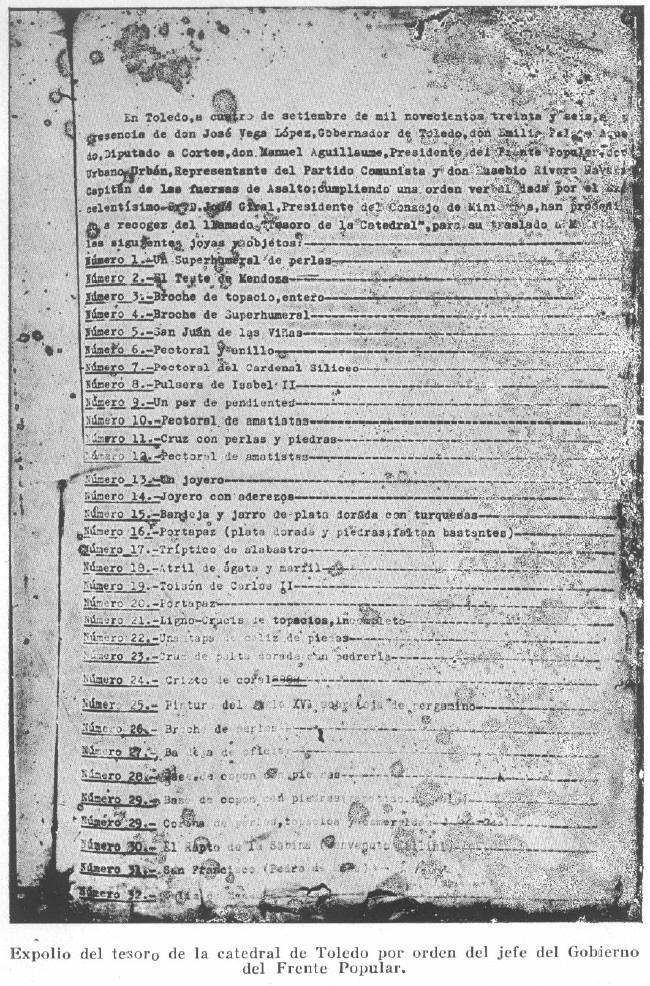 En Toledo, a cuatro de setiembre de mil novecientos treinta y seis, a
presencia de don José Vega López, Gobernador de Toledo, don Emilio
do, Diputado a Cortes, don Manuel Aguillaume, Presidente del Frente Popular, don
Urbano Urbán, Representante del Partido Comunista y don Eusebio Rivera
Capitán de las fuersas de Asalto; cumpliendo una orden verbal dada por el
celentísimo Sr. D. José Giral, Presidente del Consejo de Ministros, han procedi
a recoger del llamado "Tesoro de la Catedral", para su traslado a
las siguientes joyas y objetos:
Número 1.-Un Superhumeral de perlas
Número 2.-El Teste de Mendoza
Número 3.-Broche de topacio, entero
Número 4.-Broche de Superhumeral
Número 5.-San Juan de las Viñas
Número 6.-Pectoral y anillo
Número 7.-Pectoral del Cardenal Siliceo
Número 8.-Pulsera de Isabel II
Número 9.-Un par de pendientes
Número 10.-Pectoral de amatistas
Número 11.-Cruz con perlas y piedras
Número 12.-Pectoral de amatistas
Número 13.-Un joyero
Número 14.-Joyero con aderezos
Número 15.-Bandeja y jarro de plata dorada con turquesas
Número 16.-Portapaz (plata dorada y piedras; faltan bastantes)
Número 17.-Tríptico de alabastro
Número 18.-Atril de ágata y marfil
Número 19.-Toisón de Carlos II
Número 20.-Portapaz
Número 21.-Ligno-Crucis de topacios, incompleto
Número 22.-Una tapa de caliz de piedras
Número 23.-Cruz de palta dorada con pedreria
Número 24.-Cristo de coral
Número 25.-Pintura del siglo XVI sobre hoja de pergamino
Número 26.-Broche de perlas
Número 27.-Bandeja de
Número 28.-Base de copon de piedras
Número 29.-Base de copon con piedras
Número 29.-Corona de perlas, topacios y esmeraldas
Número 30.-El Rapto de la Sabina (Benvenuto Cellini)
Número 31.-San Francisco (Pedro de
Número 32.-
Expolio del tesoro de la catedral de Toledo por orden del jefe del Gobierno
del Frente Popular.